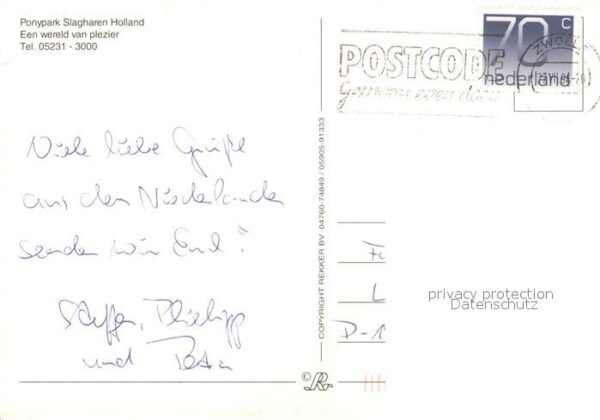 Ponypark Slagharen Holland
Een wereld van plezier
Tel. 05231 - 3000
70 c
nederland
ZWOLLE
POSTCODE
gewoon even doen
Viele liebe Grüße
aus den Niederlanden
senden wir Euch!
Steffen, Philipp
und Petra
COPYRIGHT REKKER BV 04760-74849 / 05905-91333
D-1
privacy protection
Datenschutz
©R